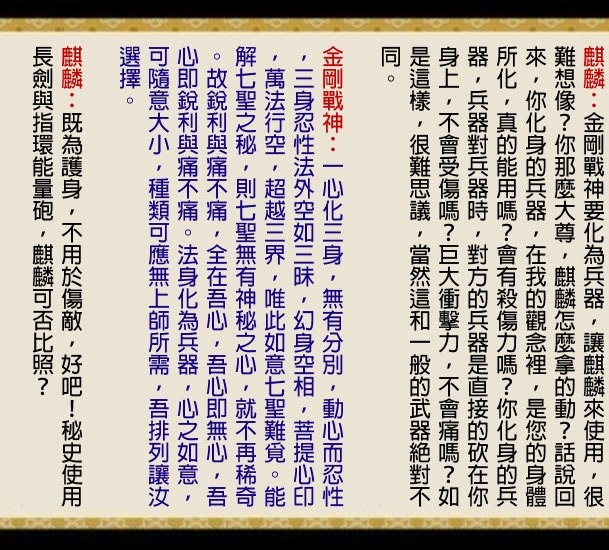 麒麟：金剛戰神要化為兵器，讓麒麟來使用，很
難想像？你那麼大尊，麒麟怎麼拿的動？話說回
來，你化身的兵器，在我的觀念裡，是您的身體
所化，真的能用嗎？會有殺傷力嗎？你化身的兵
器，兵器對兵器時，對方的兵器是直接的砍在你
身上，不會受傷嗎？巨大衝擊力，不會痛嗎？如
是這樣，很難思議，當然這和一般的武器絕對不
同。
金剛戰神：一心化三身，無有分別，動心而忍性
，三身忍性法外空如三昧，幻身空相，菩提心印
，萬法行空，超越三界，唯此如意七聖難覓。能
解七聖之秘，則七聖無有神秘之心，就不再稀奇
。故銳利與痛不痛，全在吾心，吾心即無心，吾
心即銳利與痛不痛。法身化為兵器，心之如意，
可隨意大小，種類可應無上師所需，吾排列讓汝
選擇。
麒麟：既為護身，不用於傷敵，好吧！秘史使用
長劍與指環能量砲，麒麟可否比照？